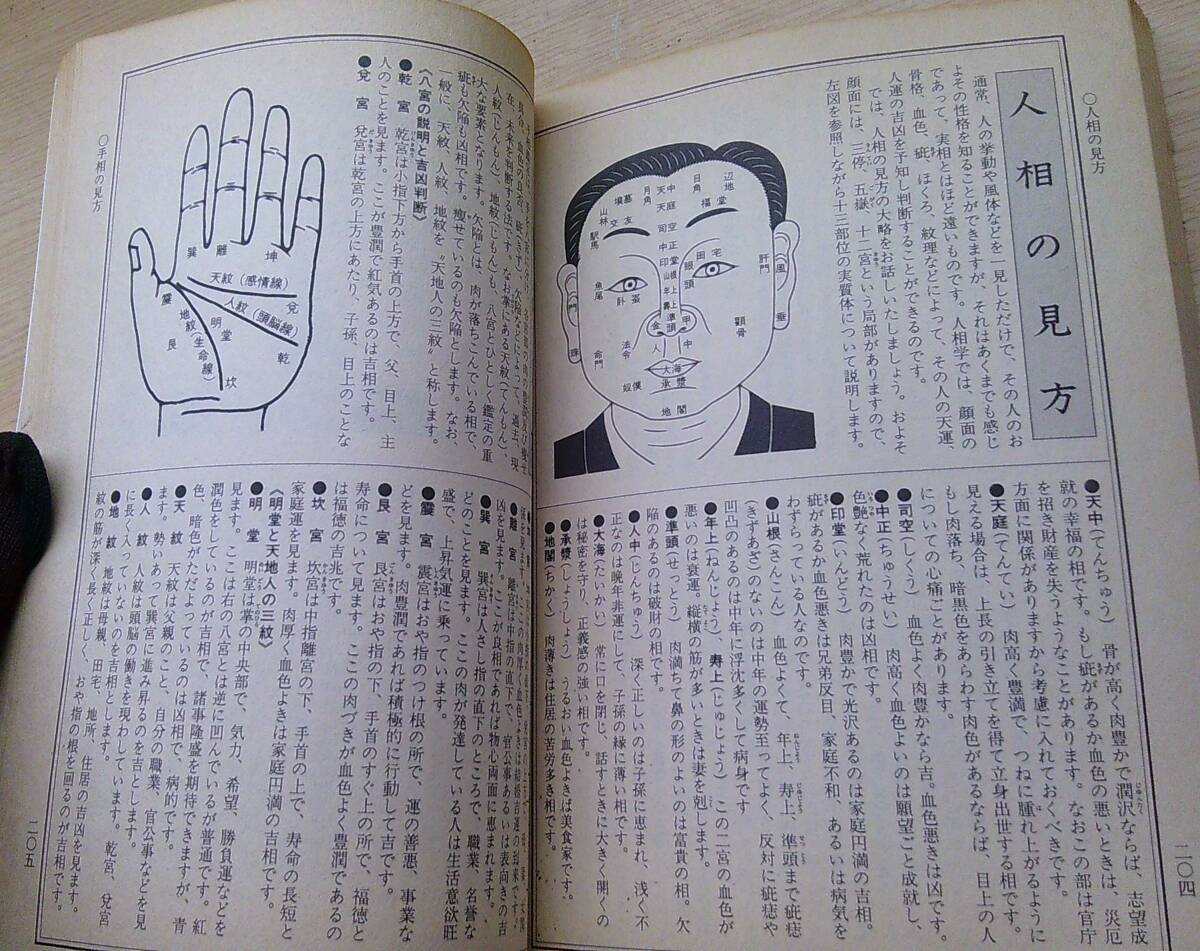 ○人相の見方
人相の見方
通常、人の挙動や風体などを一見しただけで、その人のお
よその性格を知ることができますが、それはあくまでも感じ
であって、実相とはほど遠いものです。人相学では、顔面の
骨格、血色、疵、ほくろ、紋理などによって、その人の天運、
人運の吉凶を予知し判断することができるのです。
では、人相の見方の大略をお話しいたしましょう。およそ
顔面には、三停、五嶽、十二宮という局部がありますので、
左図を参照しながら十三部位の実質体について説明します。
辺地
日角
天中
月角
天庭
福堂
墳墓
交友
山林
駅馬
司空
中正
印堂
山根
年上
寿上
準頭
田宅
眼頭
肝門
風
垂
魚尾
盗
金
甲
顴骨
法令
命門
人中
大海
承漿
奴僕
地閣
●天中(てんちゅう) 骨が高く肉豊かで潤沢ならば、志望成
就の幸福の相です。もし疵があるか血色の悪いときは、災厄
を招き財産を失うようなことがあります。なおこの部は官庁
方面に関係がありますから考慮に入れておくべきです。
●天庭(てんてい) 肉高く豊満で、つねに腫れ上がるように
見える場合は、上長の引き立てを得て立身出世する相です。
もし肉落ち、暗黒色をあらわす肉色があるならば、目上の人
についての心痛ごとがあります。
●司空(しくう) 血色よく肉豊かなら吉。血色悪きは凶です。
●中正(ちゅうせい) 肉高く血色よいのは願望ごと成就し、
色艶なく荒れたのは凶相です。
●印堂(いんどう) 肉豊かで光沢あるのは家庭円満の吉相。
疵があるか血色悪きは兄弟反目、家庭不和、あるいは病気を
わずらっている人なのです。
●山根(さんこん) 血色よくて、年上、寿上、準頭まで疵痣
(きずあざ)のないのは中年の運勢至ってよく、反対に疵痣や
凹凸のあるのは中年に浮沈多くして病身です
●年上(ねんじょう)、寿上(じゅじょう) この二宮の血色が
悪いのは衰運、縦横の筋が多いときは妻を剋します。
●準頭(せっとう) 肉満ちて鼻の形のよいのは富貴の相。欠
陥のあるのは破財の相です。
●人中(じんちゅう) 深く正しいのは子孫に恵まれ、浅く不
正なのは晩年非運にして、子孫の縁に薄い相です。
●大海(たいかい) 常に口を閉じ、話すときに大きく開くの
は秘密を守り、正義感の強い相です。
●承漿(しょうしょう) うるおい血色よきは美食家です。
●地閣(ちかく) 肉薄きは住居の苦労多き相です。
二〇四
大な要素となります。欠陥とは、肉が落ちこんでいる相で、
疵も欠陥も凶相です。痩せているのも欠陥とします。なお、
一般に、天紋、人紋、地紋を〝天地人の三紋〟と称します。
《八宮の説明と吉凶判断》
●乾 宮 乾宮は小指下方から手首の上方で、父、目上、主
人のことを見ます。ここが豊潤で紅気あるのは吉相です。
●兌 宮 兌宮は乾宮の上方にあたり、子孫、目上のことな
巽
離
坤
天紋(感情線)
兌
人紋(頭脳線)
震
地紋(生命線)
明堂
艮
乾
坎
○手相の見方
●巽 宮 巽宮は人さし指の直下のところで、職業、名誉な
どのことを見ます。ここの肉が発達している人は生活意欲旺
盛で、上昇気運に乗っています。
●震 宮 震宮はおや指のつけ根の所で、運の善悪、事業な
どを見ます。肉豊潤であれば積極的に行動して吉です。
●艮 宮 艮宮はおや指の下、手首のすぐ上の所で、福徳と
寿命について見ます。ここの肉づきが血色よく豊潤であるの
は福徳の吉兆です。
●坎 宮 坎宮は中指離宮の下、手首の上で、寿命の長短と
家庭運を見ます。肉厚く血色よきは家庭円満の吉相です。
《明堂と天地人の三紋》
●明 堂 明堂は掌の中央部で、気力、希望、勝負運などを
見ます。ここは右の八宮とは逆に凹んでいるが普通です。紅
潤色をしているのが吉相で、諸事隆盛を期待できますが、青
色、暗色がただよっているのは凶相で、病的です。
●天 紋 天紋は父親のこと、自分の職業、官公事などを見
ます。勢いあって巽宮に進み昇るのを吉とします。
●人 紋 人紋は頭脳の働きを現わしています。乾宮、兌宮
に長く入っていないのを吉相とします。
●地 紋 地紋は母親、田宅、地所、住居の吉凶を見ます。
紋の筋が深く長く正しく、おや指の根を回るのが吉相です。
二〇五